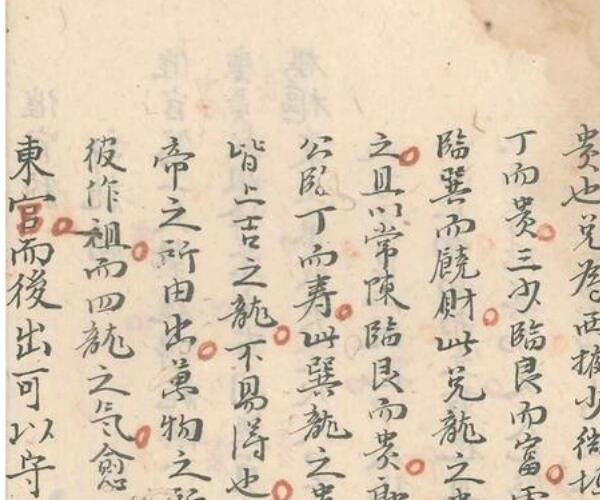 貴也兌為西掖少微
丁而贵三少临艮而富
臨巽而饒財此兌龍之
之且以常陳临艮而贵
公临丁而寿此巽龍之
皆上吉之龍不易得也
帝之所由出萬物之所
彼作祖而四龍之氣愈
東宫而後出可以守